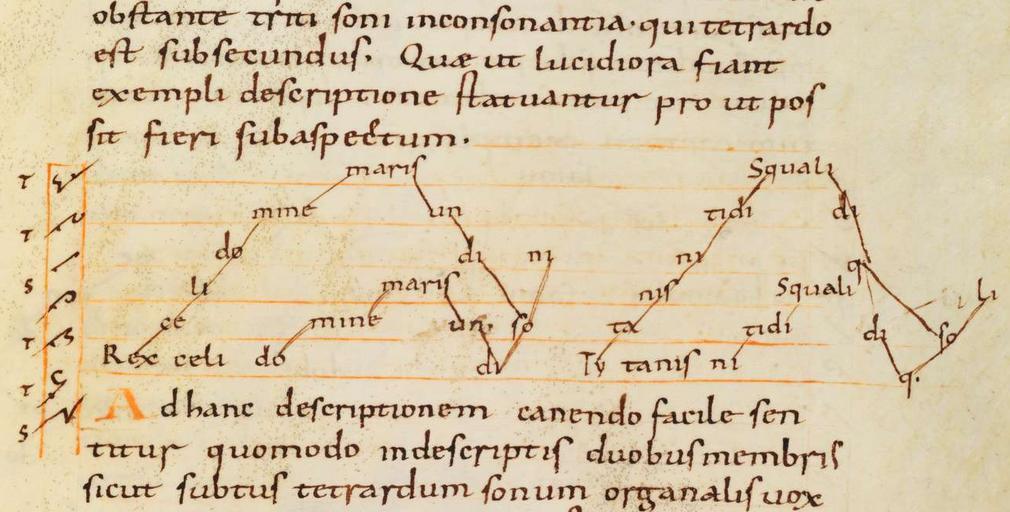 obstante triti soni inconsonantia· qui tetrardo
est subsecundus. Quæ ut lucidiora fiant
exempli descriptione statuantur pro ut pos
sit fieri sub aspectum.
maris Squali
mine un tidi di
do di ni ni q
li maris nis Squali li
ce mine un so ta tidi di so
Rex celi do di Ty tanis ni q.
T
T
S
T
T
S
Ad hanc descriptionem canendo facile sen
titur quomodo in descriptis duobus membris
sicut subtus tetrardum sonum organalis vox